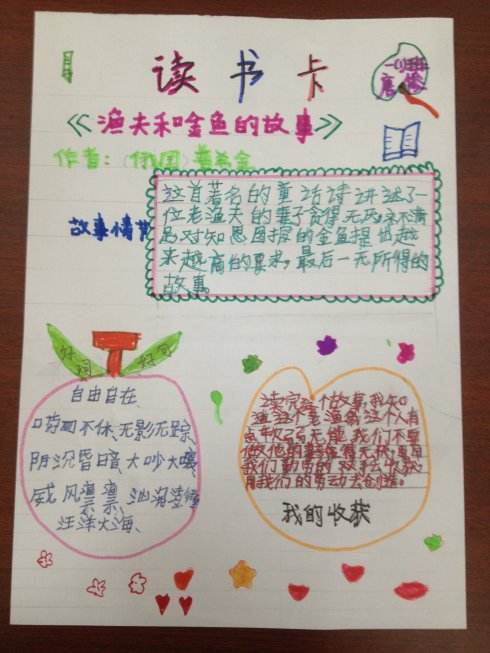 读书卡
一(1)班
《渔夫和金鱼的故事》
作者:(俄国)普希金
故事情节
这首著名的童话诗讲述了一
位老渔夫的妻子贪得无厌,永不满
足对知恩图报的金鱼提出越
来越高的要求,最后一无所得的
故事。
好词
好句
自由自在、
唠叨不休、无影无踪、
阴沉昏暗、大吵大嚷、
威风凛凛、汹涌澎湃、
汪洋大海、
读完这个故事,我知
道这个老渔翁这个人有
点软弱无能,我们不要
我们勤劳的双手
用我们的劳动去创造。
我的收获